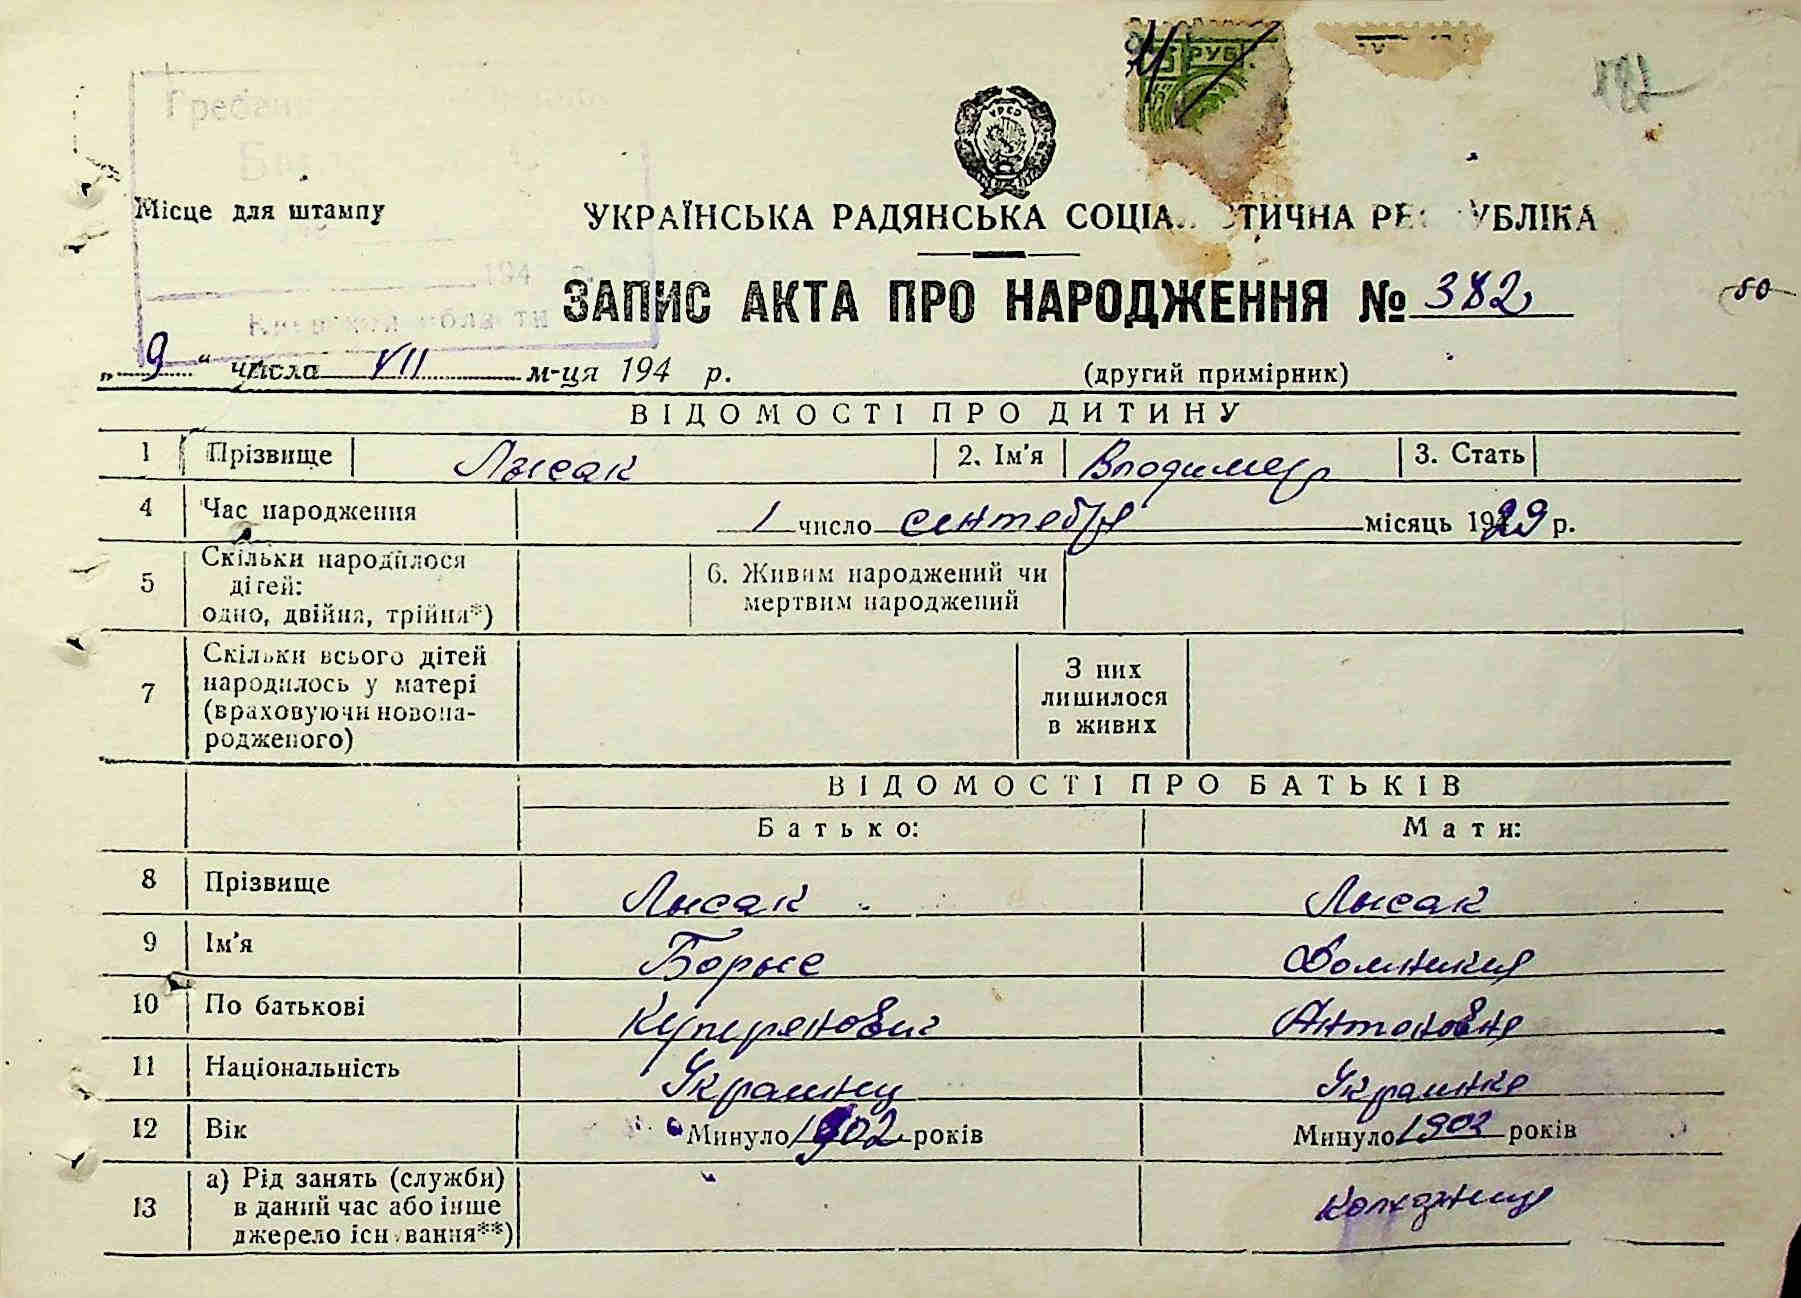 РУБ.
УРСР
Місце для штампу
УКРАЇНСЬКА РАДЯНСЬКА СОЦІА ТИЧНА РЕ УБЛІКА
194
ЗАПИС АКТА ПРО НАРОДЖЕННЯ № 382
50
„ 9 " числа VII м-ця 194 р.
(другий примірник)
ВІДОМОСТІ ПРО ДИТИНУ
1 Прізвище Лысак 2. Ім'я Владимир 3. Стать
4 Час народження 1 число сентября місяць 1929 р.
5 Скільки народилося дітей: одно, двійня, трійня*) 6. Живим народжений чи мертвим народжений
7 Скільки всього дітей народилось у матері (враховуючи новона-родженого) З них лишилося в живих
ВІДОМОСТІ ПРО БАТЬКІВ
Батько: Мати:
8 Прізвище Лысак Лысак
9 Ім'я Борис Домникия
10 По батькові Куприянович Антоновна
11 Національність Украинец Украинка
12 Вік Минуло 1902 років Минуло 1902 років
13 а) Рід занять (служби) в даний час або інше джерело існування**) Колхозница